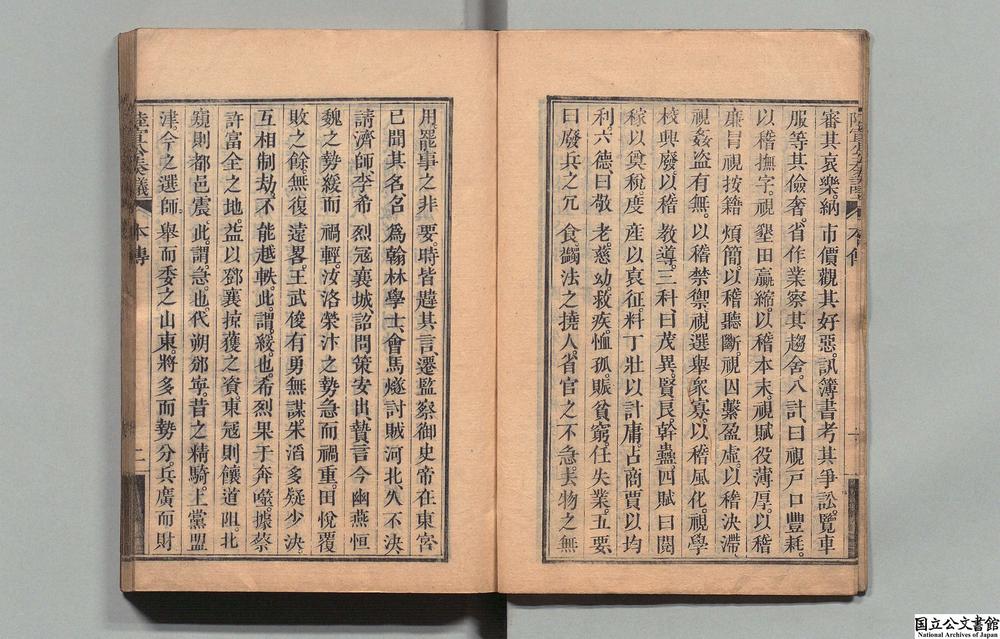 審其哀樂。納市價觀其好惡。訊簿書考其爭訟。覽車
服等其儉奢。省作業察其趨舍。八計、曰視戶口豐耗。
以稽撫字。視墾田贏縮。以稽本末。視賦役薄厚。以稽
廉冒。視按籍煩簡。以稽聽斷。視囚繫盈虛。以稽決滯、
視姦盜有無。以稽禁禦。視選舉衆寡。以稽風化。視學
校興廢。以稽教導。三科、曰茂異、賢良、幹蠱。四賦、曰閱
稼以奠稅。度產以裒征。料丁壯以計庸。占商賈以均
利。六德、曰敬老。慈幼。救疾。恤孤。賑貧窮。任失業。五要、
曰廢兵之冗食。蠲法之撓人。省官之不急。去物之無
陸宣公奏議
本傳
用。罷事之非要。時皆韙其言。遷監察御史。帝在東宮
已聞其名。召爲翰林學士。會馬燧討賊河北。久不決
請濟師。李希烈寇襄城。詔問策安出。贄言今幽燕恒
魏之勢緩而禍輕。汝洛榮汴之勢急而禍重。田悅覆
敗之餘。無復遠畧。王武俊有勇無謀。朱滔多疑少決。
互相制劫。不能越軼。此謂緩也。希烈果于奔噬。據蔡
許富全之地。益以鄧襄掠獲之資。東寇則饟道阻。北
窺則都邑震。此謂急也。代朔邠寧。昔之精騎。上黨盟
津。今之選師。舉而委之山東。將多而勢分。兵廣而財
陸宣公奏議
本傳
二
国立公文書館
National Archives of Japan